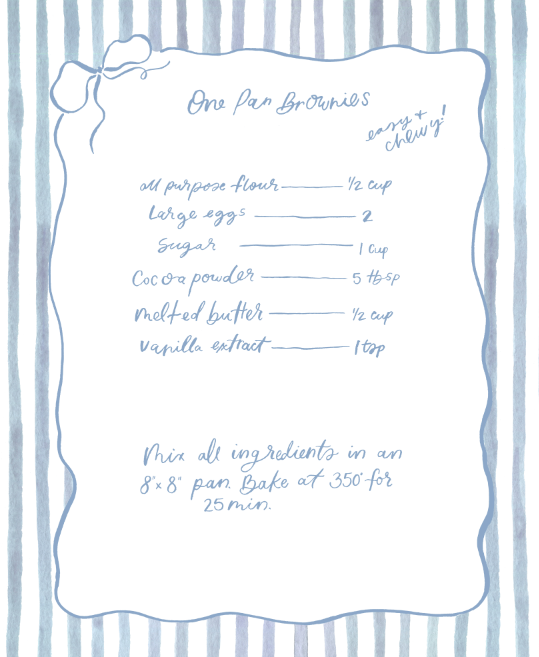 One Pan Brownies
easy +
chewy!
all purpose flour — 1/2 cup
Large eggs — 2
Sugar — 1 cup
Cocoa powder — 5 tbsp
melted butter — 1/2 cup
vanilla extract — 1 tsp
Mix all ingredients in an
8"x 8" pan. Bake at 350° for
25 min.